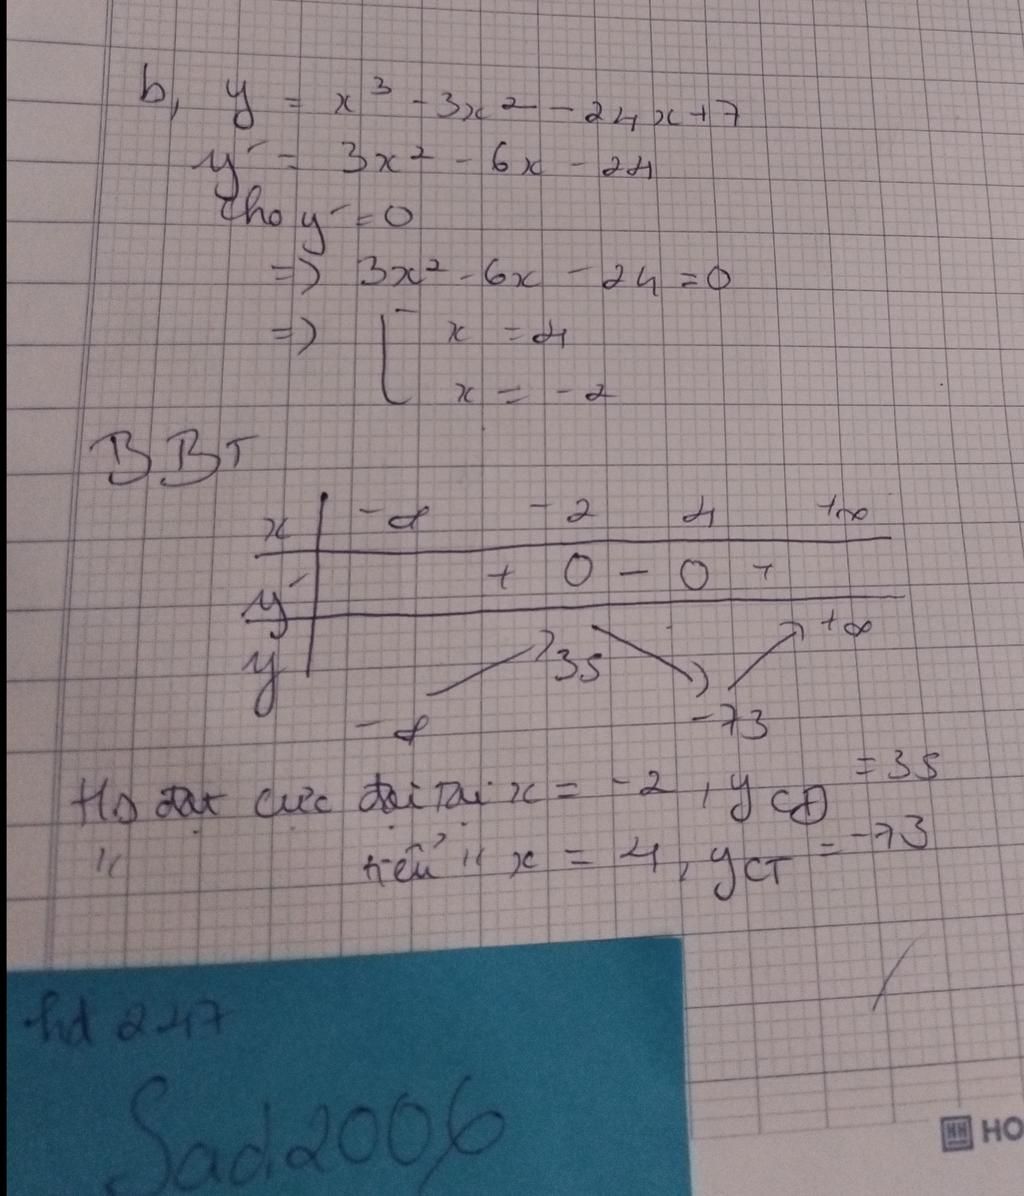 b, y = x³ - 3x² - 24x + 7
y' = 3x² - 6x - 24
cho y' = 0
=> 3x² - 6x - 24 = 0
=> [ x = 4
x = -2
BBT
x | -∞ -2 4 +∞
y' | + 0 - 0 +
y | -∞ 35 -73 +∞
Hs đạt cực đại tại x = -2, yCĐ = 35
" tiểu " x = 4, yCT = -73
hd 247
Sad.2006
HO